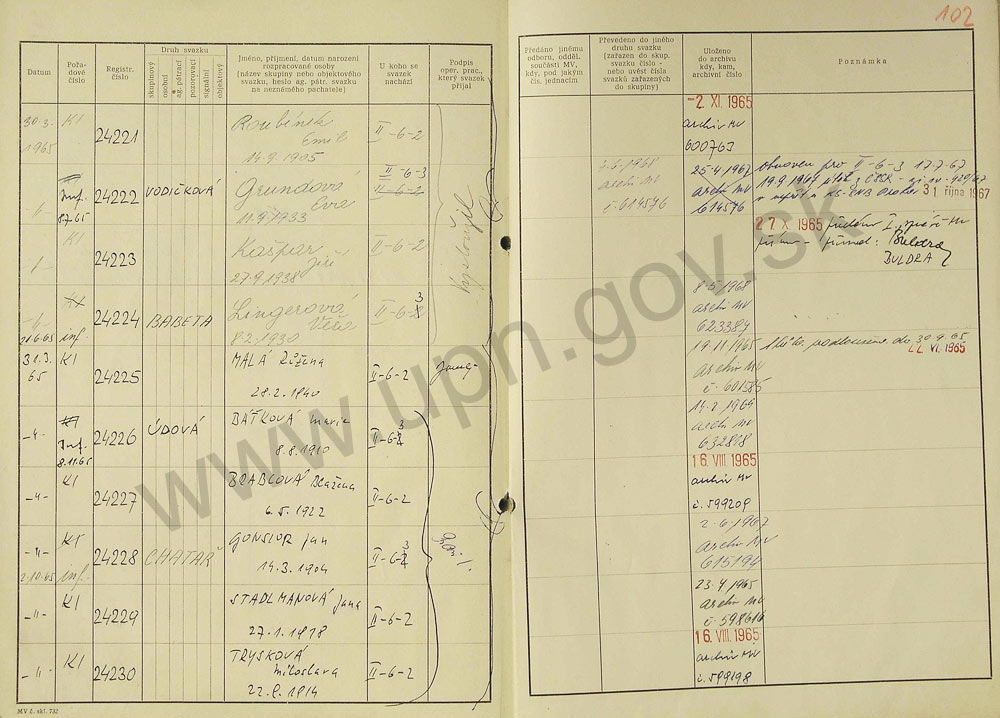 102
Datum
Pořa-
dové
číslo
Registr.
číslo
Druh svazku
skupinový
osobní
ag. pátrací
pozorovací
signální
objektový
Jméno, příjmení, datum narození
rozpracované osoby
(název skupiny nebo objektového
svazku, heslo ag. pátr. svazku
na neznámého pachatele)
U koho se
svazek
nachází
Podpis
oper. prac.,
který svazek
přijal
Předáno jinému
odboru, odděl.
součásti MV,
kdy, pod jakým
čís. jednacím
Převedeno do jiného
druhu svazku
(zařazen do skup.
svazku číslo -
nebo uvést čísla
svazků zařazených
do skupiny)
Uloženo
do archivu
kdy, kam,
archivní číslo
Poznámka
30.3.
1965
KI
24221
Roubínek
Emil
14.9.1905
II-6-2
-2. XI. 1965
archiv MV
600763
Inf.
8.7.65
24222
VODIČKOVÁ
Grundová
Eva
11.9.1933
II-6-3
II-6-2
6.6.1968
archiv MV
č. 614576
25.4.1967
archiv MV
614576
obnoven pro II-6-3 17.7.67
31 října 1967
KI
24223
Kašpar
Jiří
27.9.1938
II-6-2
27 X. 1965
BULDRA
21.6.65
inf.
24224
BABETA
Lingerová
Věra
8.2.1930
II-6-3
8.5.1968
archiv MV
623384
31.3.
65
KI
24225
MALÁ Růžena
28.2.1940
II-6-2
19.11.1965
archiv MV
č. 601585
30.9.65
22. VI. 1965
-"-
Inf.
8.11.65
24226
ÚDOVÁ
BÁŤKOVÁ Marie
8.8.1910
II-6-3
archiv MV
632818
-"-
KI
24227
BRABCOVÁ Blažena
6.5.1922
II-6-2
16. VIII. 1965
archiv MV
č. 599209
-"-
KI
2.10.65
inf.
24228
CHATAŘ
GONSIOR Jan
14.3.1904
II-6-3
2.6.1967
archiv MV
615194
-"-
KI
24229
STADLMANOVÁ Jana
27.1.1918
II-6-2
23.4.1965
archiv MV
č. 598616
-"-
KI
24230
TRYSKOVÁ
Miloslava
22.9.1914
II-6-2
16. VIII. 1965
archiv MV
č. 599198
MV č. skl. 732
www.upn.gov.sk